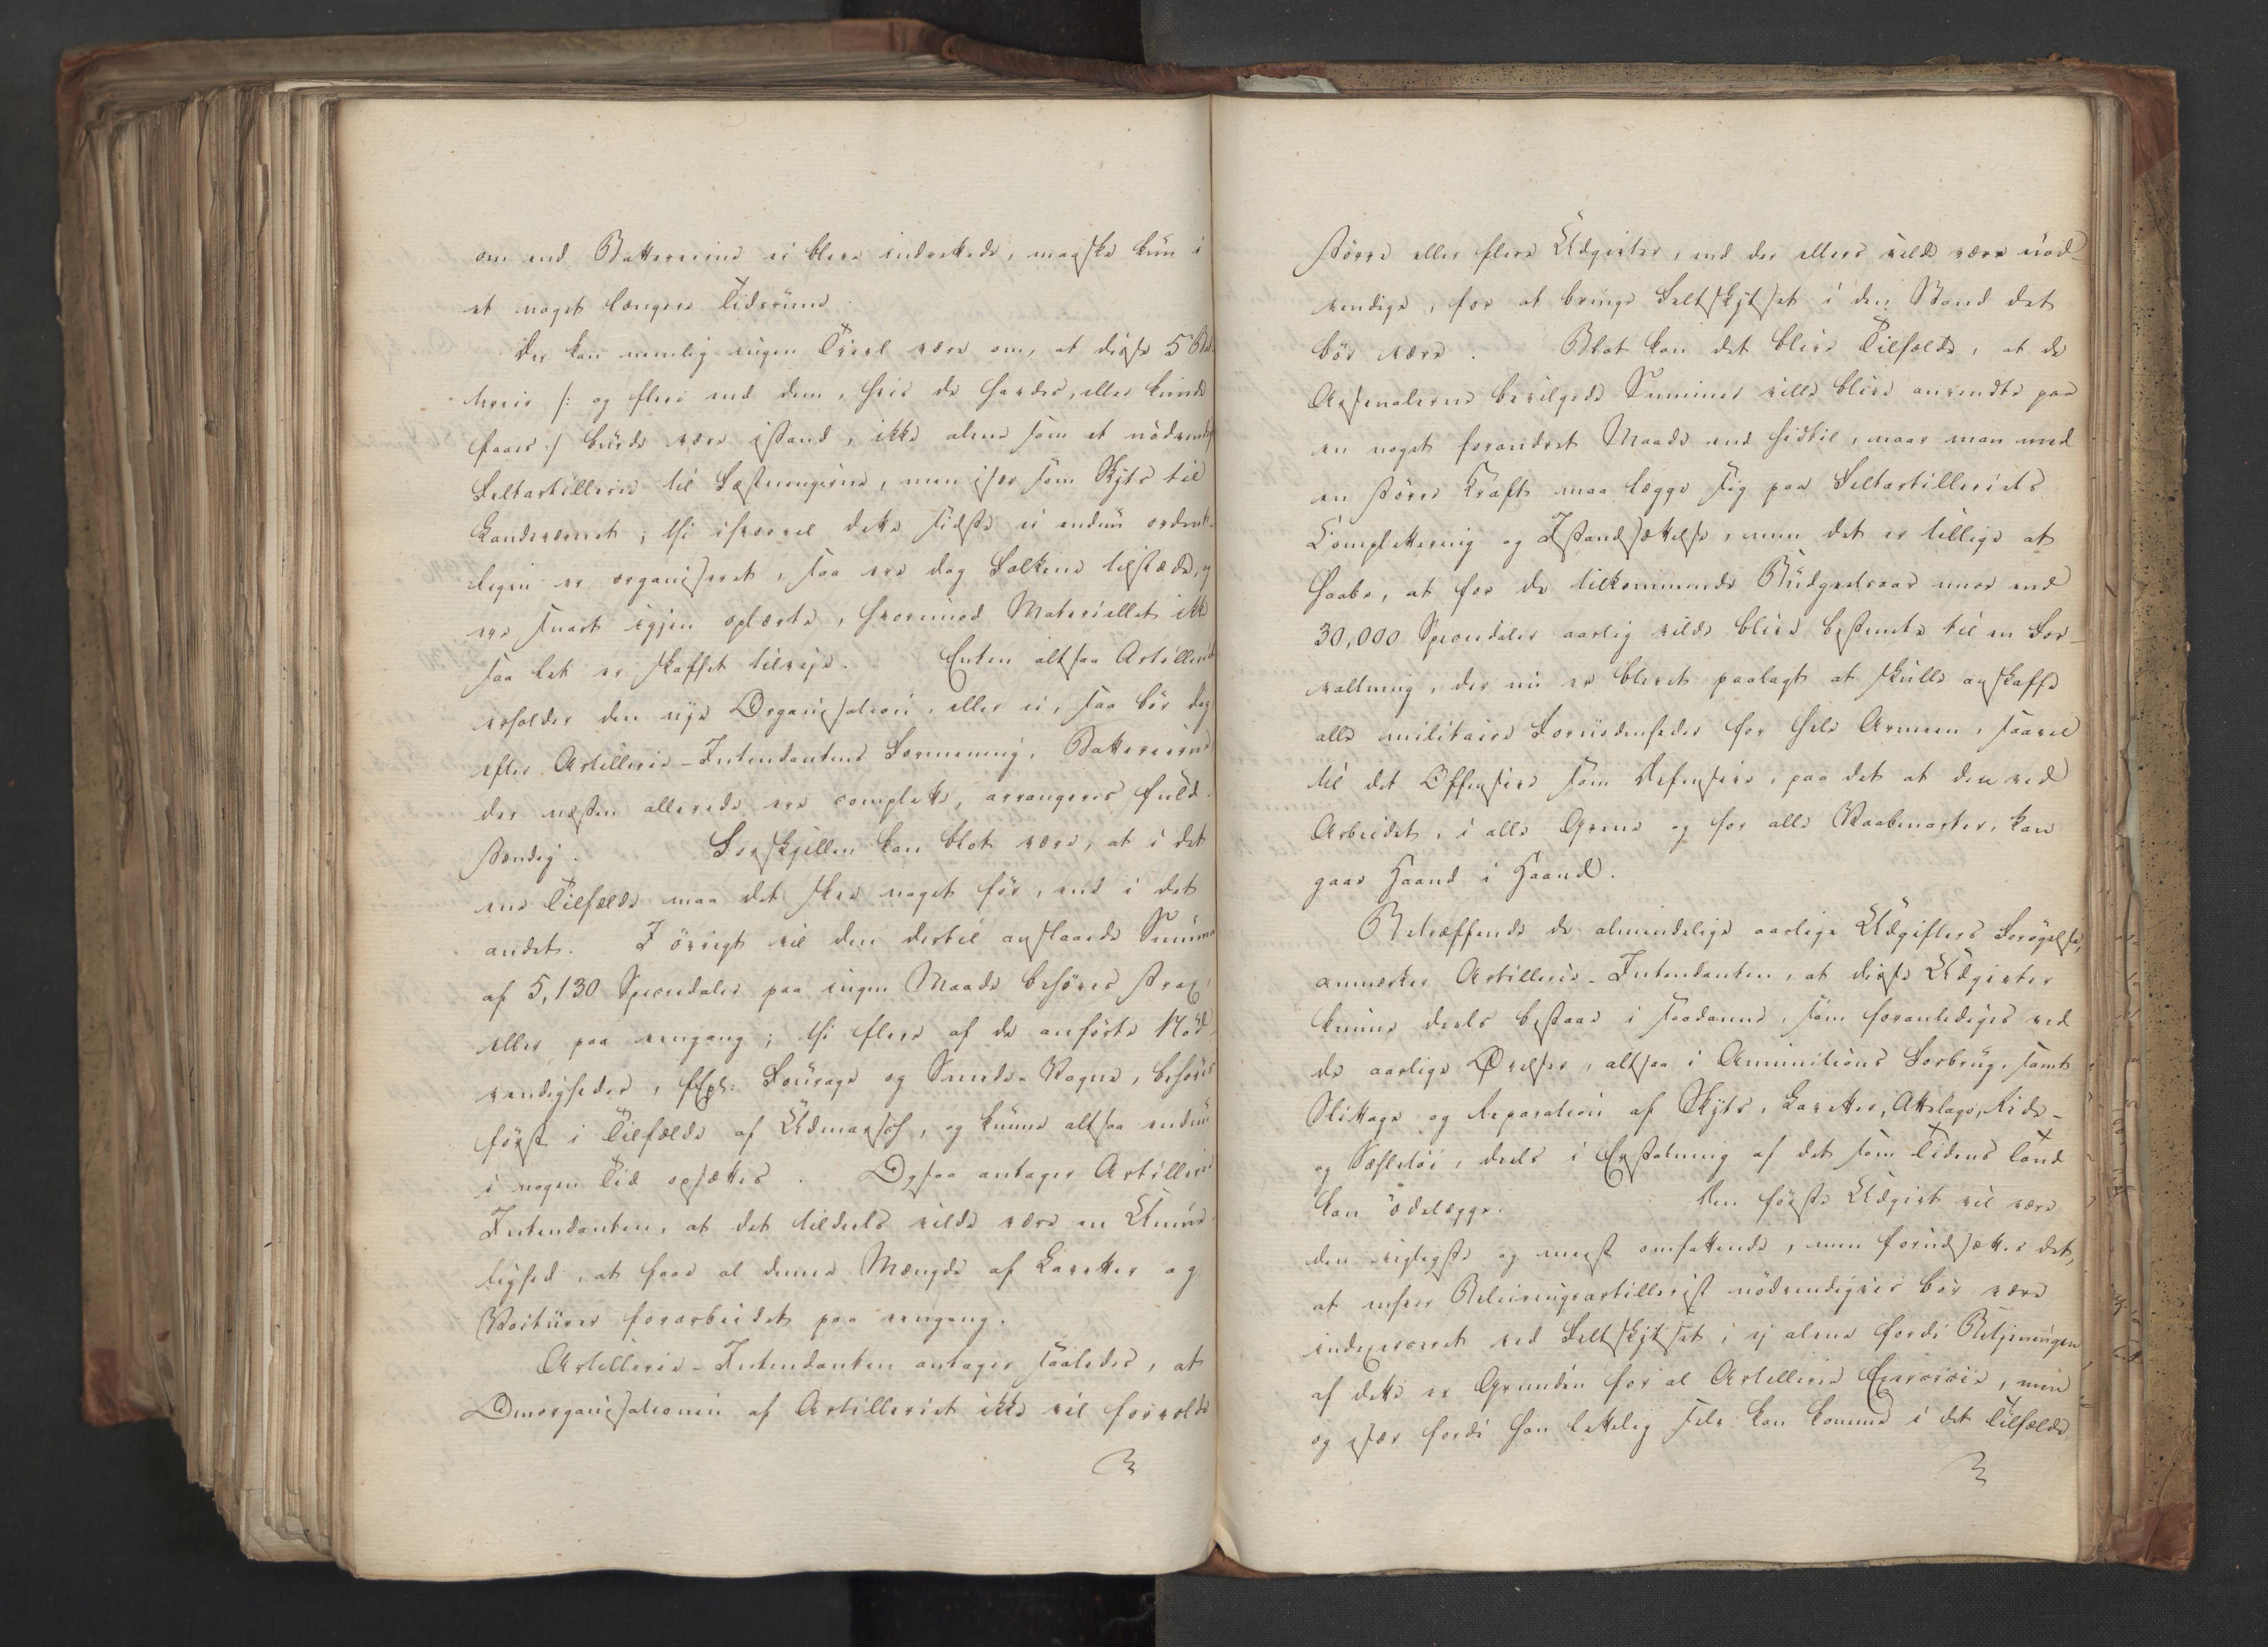 om end Batterierne ei blive indrettede, maaske kun i
et noget længere Tidsrum.
Der kan nemlig ingen Tvivl være om, at disse 5 Bat-
terier /: og flere end dem, hvis de havdes, eller kunde
faaes :/ burde være istand, ikke alene som et nødvendigt
Feltartillerie til Fæstningerne, men især som Skyts til
Landværnet; thi ihvorvel dette sidste ei endnu ordent-
ligen er organiseret, saa ere dog Folkene tilstæde, og
ere snart igjen oplærte, hvorimod Materiellet ikke
saa let er skaffet tilveje. Enten altsaa Artilleriet
erholder den nye Organisation, eller ei, saa bör dog
efter Artillerie-Intendantens Formening, Batterierne
der næsten allerede ere complette, arrangeres fuld-
stændig. Forskjellen kan blot være, at i det
ene Tilfælde maa det skee noget för, end i det
andet. I övrigt vil den dertil anslaaede Summa
af 5,130 Speciedaler paa ingen Maade behöves strax,
eller paa eengang; thi flere af de anförte Nöd-
vendigheder, f Expl: Fourage og Smede-Vogne, behöves
först i Tilfælde af Udmarsch, og kunne altsaa endnu
i nogen Tid opsættes. Ogsaa antager Artillerie
Intendanten, at det tildeels vilde være en Umue-
lighed, at faae al denne Mængde af Lavetter og
Voiturer forarbeidet paa eengang.
Artillerie-Intendanten antager saaledes, at
Omorganisationen af Artilleriet ikke vil forvolde
större eller flere Udgivter, end der ellers vilde være nöd-
vendige, for at bringe Feltskytset i den Stand det
bör være. Blot kan det blive Tilfælde, at de
Arsenalerne bevilgede Summer ville blive anvendte paa
en noget forandret Maade end hidtil, naar man med
en större Kraft maa lægge sig paa Feltartilleriets
Complettering og Istandsættelse, men det er tillige at
haabe, at for de tilkommende Budgetsaar meer end
30,000 Speciedaler aarlig vilde blive bestemte til en For-
valtning, der nu er blevet paalagt at skulle anskaffe
alle militaire Fornödenheder for hele Armeen, saavel
til det Offensive som Defensive, paa det at den ved
Arbeidet, i alle Grene og for alle Vaabenarter, kan
gaae Haand i Haand.
Betræffende de almindelige aarlige Udgifters Forögelse,
anmærker Artillerie-Intendanten, at disse Udgivter
kunne deels bestaae i saadanne, som foranlediges ved
de aarlige Övelser, altsaa i Amunitions Forbrug, samt
Slittage og Reparation af Skyts, Lavetter, Attelage, Ride-
og Sæletöi, deels i Erstatning af det som Tidens Tand
kan ödelægge. Den förste Udgivt vil være
den vigtigste og meest omfattende, men forudsættes det,
at enhver Beleiringsartillerist nödvendigviis bör være
indexerceret ved Feltskytset, ej alene fordi Betjeningen
af dette er Grunden for al Artillerie Exercice, men
og især fordi han lettelig selv kan komme i det Tilfælde